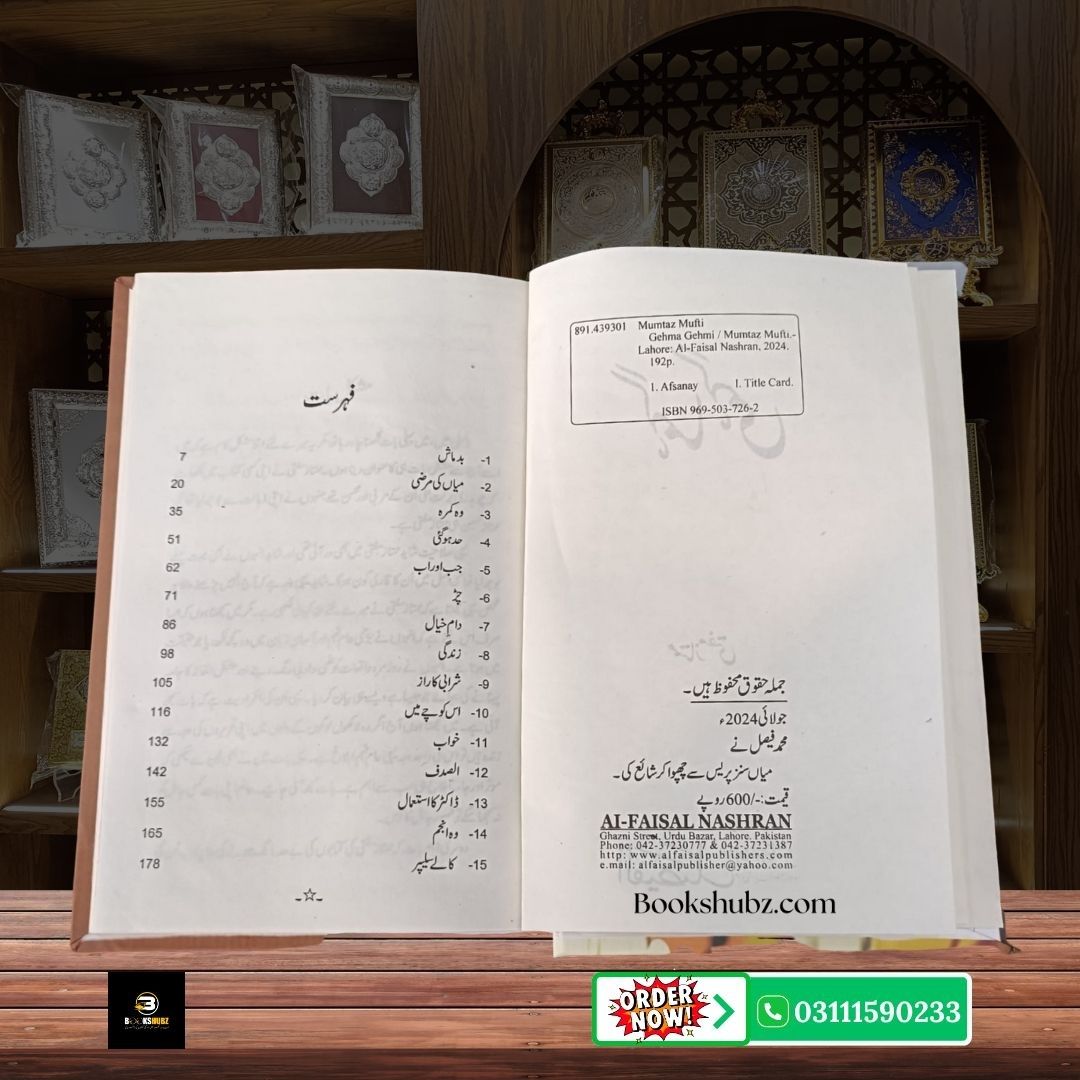 فہرست
1- بدماش 7
2- میاں کی مرضی 20
3- وہ کمرہ 35
4- حد ہو گئی 51
5- جب اور اب 62
6- چڑ 71
7- دامِ خیال 86
8- زندگی 98
9- شرابی کا راز 105
10- اس کوچے میں 116
11- خواب 132
12- الصدف 142
13- ڈاکٹر کا استعمال 155
14- وہ انجم 165
15- کالے سلیپر 178
891.439301 Mumtaz Mufti
Gehma Gehmi / Mumtaz Mufti.-
Lahore: Al-Faisal Nashran, 2024.
192p.
1. Afsanay I. Title Card.
ISBN 969-503-726-2
جملہ حقوق محفوظ ہیں۔
جولائی 2024ء
محمد فیصل نے
میاں سنز پریس سے چھپوا کر شائع کی۔
قیمت:-/600 روپے
AI-FAISAL NASHRAN
Ghazni Street, Urdu Bazar, Lahore. Pakistan
Phone: 042-37230777 & 042-37231387
http: www.alfaisalpublishers.com
e.mail: alfaisalpublisher@yahoo.com
Bookshubz.com
BOOKSHUBZ
ORDER NOW!
03111590233